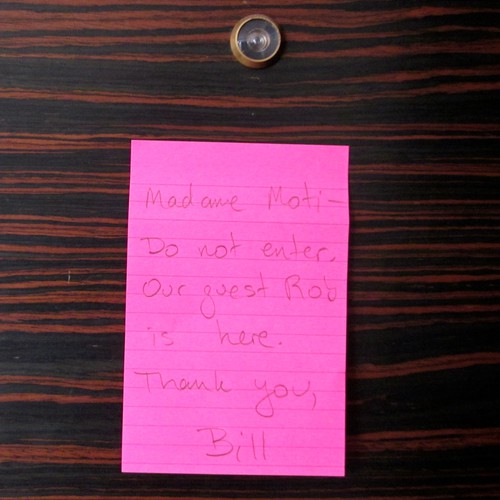 Madame Moti-
Do not enter.
Our guest Rob
is here.
Thank you,
Bill